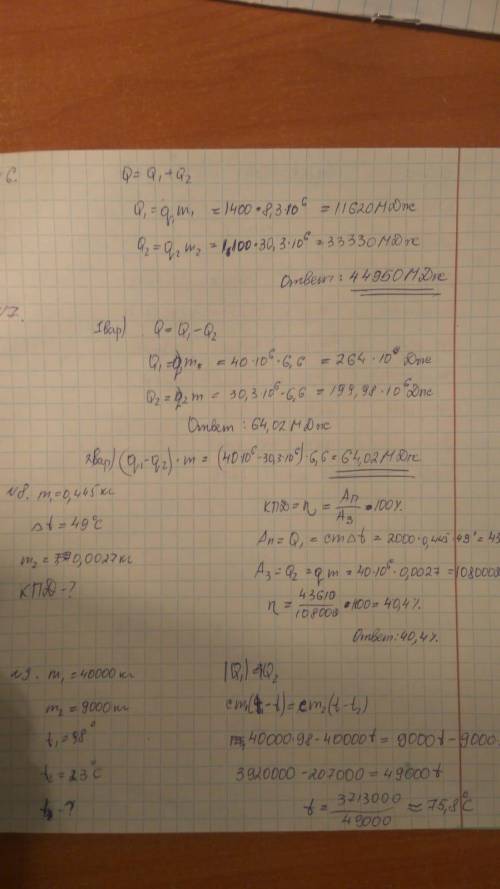 6.
Q = Q₁ + Q₂
Q₁ = q₁m₁ = 1400 • 8,3•10⁶ = 11620 МДж
Q₂ = q₂m₂ = 1100•30,3•10⁶ = 33330 МДж
Ответ: 44950 МДж
1вар) Q = Q₁ - Q₂
Q₁ = q₁m = 40•10⁶•6,6 = 264•10⁶ Дж
Q₂ = q₂m = 30,3•10⁶•6,6 = 199,98•10⁶ Дж
Ответ: 64,02 МДж
2вар) (q₁-q₂)•m = (40•10⁶-30,3•10⁶)•6,6 = 64,02 МДж
№8. m₁=0,445 кг
Δt = 49°C
m₂ = 0,0027 кг
КПД-?
КПД = η = Aп/Aз •100%
Aп = Q₁ = cmΔt = 2000•0,445•49° = 43
Aз = Q₂ = qm = 40•10⁶•0,0027 = 108000
η = 43610/108000 •100 = 40,4%
Ответ: 40,4%
№9. m₁ = 40000 кг
m₂ = 9000 кг
t₁ = 98°
t₂ = 23°C
t - ?
|Q₁| = Q₂
cm₁(t₁-t) = cm₂(t-t₂)
40000•98 - 40000t = 9000t - 9000•
3920000 - 207000 = 49000t
t = 3713000/49000 ≈ 75,8°C